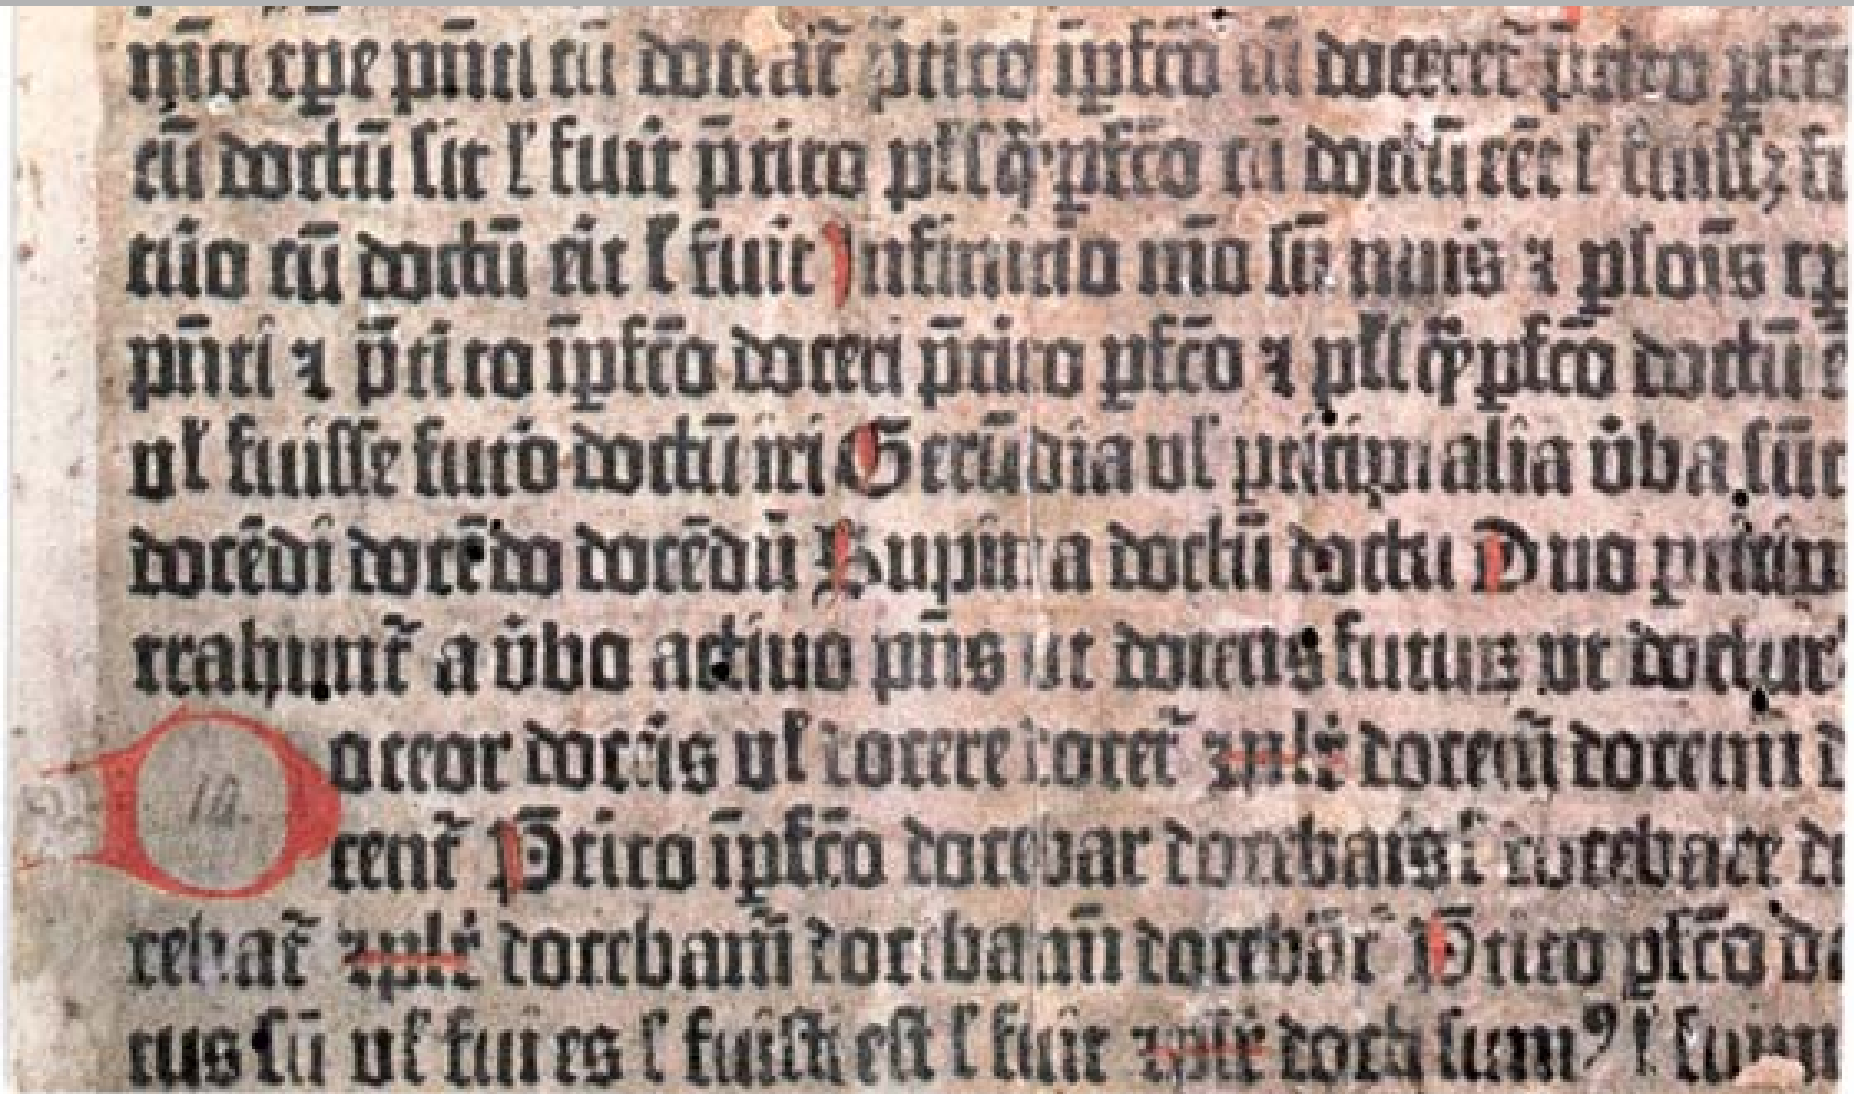 mō tꝑe pn̄ti cū doceat͛ p̄tito īpfcō cū doceret͛ p̄tito pfcō
cū doctū sit ł fuit p̄tito płsq̄ꝑpfcō cū doctū eēt ł fuissꝫ fu
tūo cū doctū erit ł fuit Infinitiō mō sn̄ nūis ⁊ ꝑsoīs tꝑ
pn̄ti ⁊ p̄tito īpfcō doceri p̄tito pfcō ⁊ płsq̄ꝑpfcō doctū e
uł fuisse futō doctū iri Gerūdia uł pͥticipialia v̄ba sūt
docēdi docēdo docēdū Supina doctū doctu Duo pͥticip
trahunt͛ a v̄bo actiuo pn̄s ut docens futuꝝ ut doctur᷒
Doceor doceris uł docere docet͛ ⁊płr͛ docem̄ docemī
cent͛ P̄tito īpfcō docebar docebaris ł docebare do
cebat͛ ⁊płr͛ docebam̄ docebamī docebāt͛ P̄tito pfcō do
ctus sū uł fui es ł fuisti est ł fuit ⁊płr͛ docti sum᷒ ł fuim